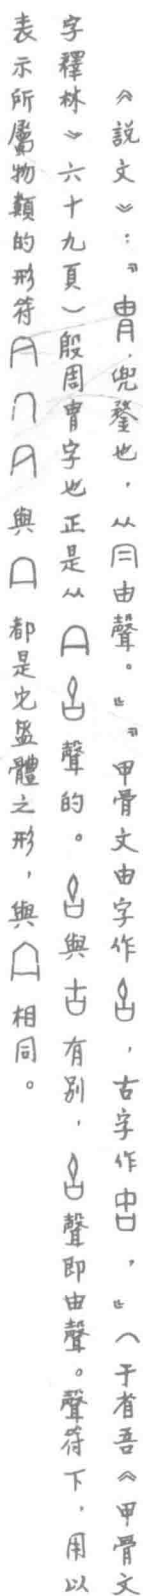 《說文》：『冑，兜鍪也，从冃由聲。』『甲骨文由字作，古字作，』（于省吾《甲骨文
字釋林》六十九頁）殷周冑字也正是从聲的。與有別，聲即由聲。聲符下，用以
表示所屬物類的形符與都是兜盔體之形，與相同。